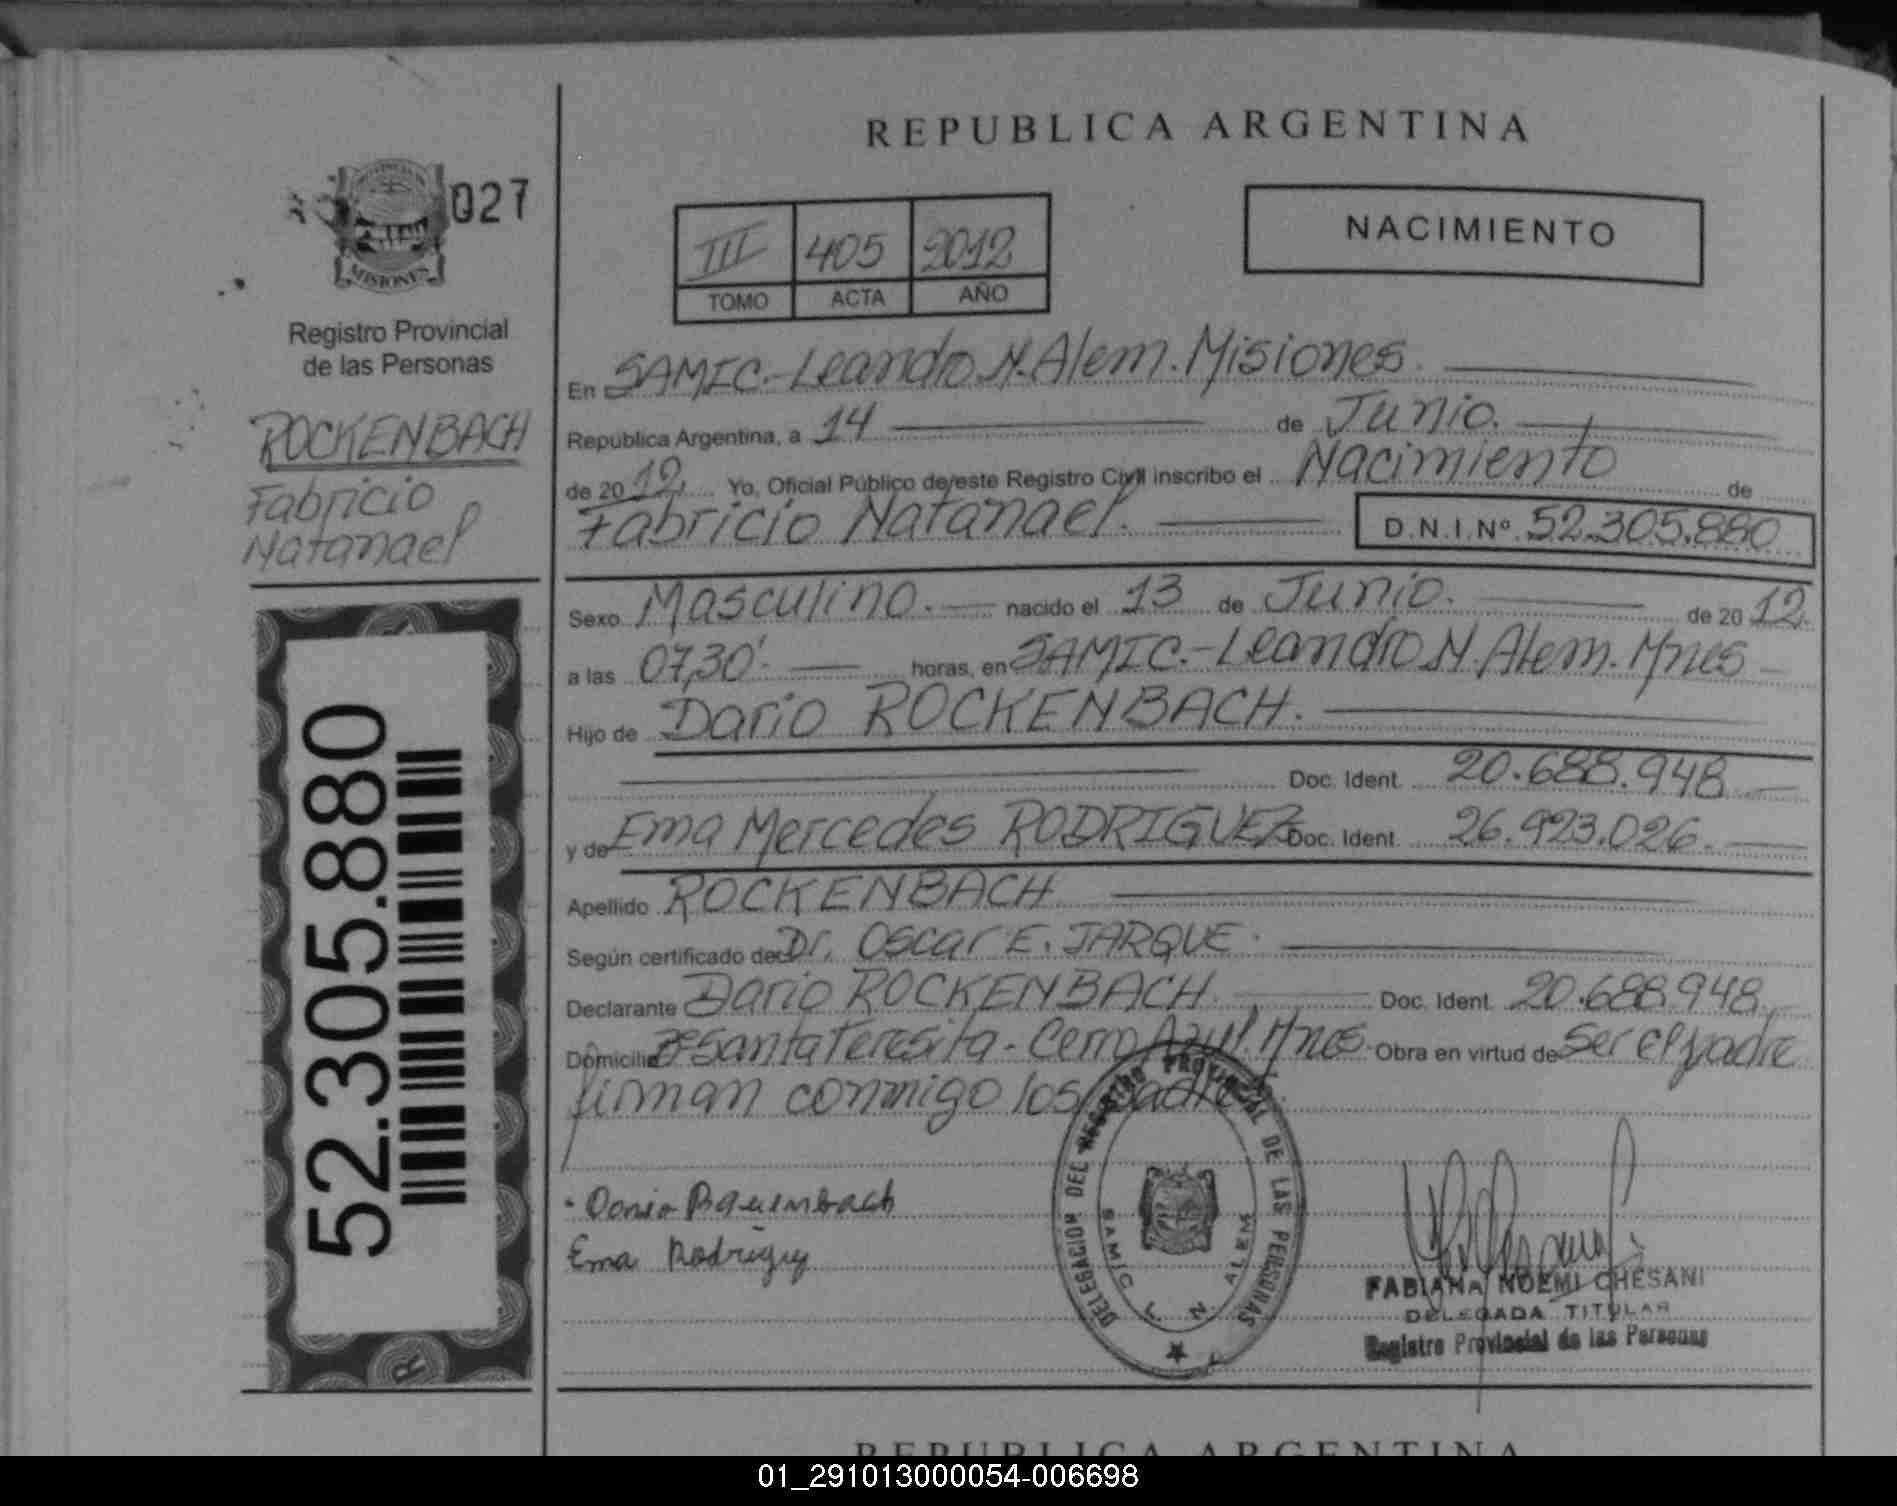 REPUBLICA ARGENTINA
027
MISIONES
Registro Provincial
de las Personas
ROCKENBACH
Fabricio
Natanael
52.305.880
III 405 2012
TOMO ACTA AÑO
NACIMIENTO
En SAMIC.-Leandro N. Alem. Misiones.
República Argentina, a 14 de Junio.
de 2012. Yo, Oficial Público de/este Registro Civil inscribo el Nacimiento de
Fabricio Natanael. D.N.I.Nº 52.305.880
Sexo Masculino. nacido el 13 de Junio. de 2012.
a las 07,30'. horas, en SAMIC.-Leandro N. Alem. Mnes
Hijo de Dario ROCKENBACH.
Doc. Ident. 20.688.948
y de Ema Mercedes RODRIGUEZ Doc. Ident. 26.923.026.
Apellido ROCKENBACH
Según certificado de Dr. Oscar E. JARQUE.
Declarante Dario ROCKENBACH. Doc. Ident. 20.688.948.
Domicilio Santa Teresita. Cerro Azul. Mnes. Obra en virtud de ser el padre
firman conmigo los padres.
Ema Rodriguez
DELEGACION DEL REGISTRO PROVINCIAL DE LAS PERSONAS
SAMIC L. N. ALEM
FABIANA NOEMI CHESANI
DELEGADA TITULAR
Registro Provincial de las Personas
REPUBLICA ARGENTINA
01_291013000054-006698